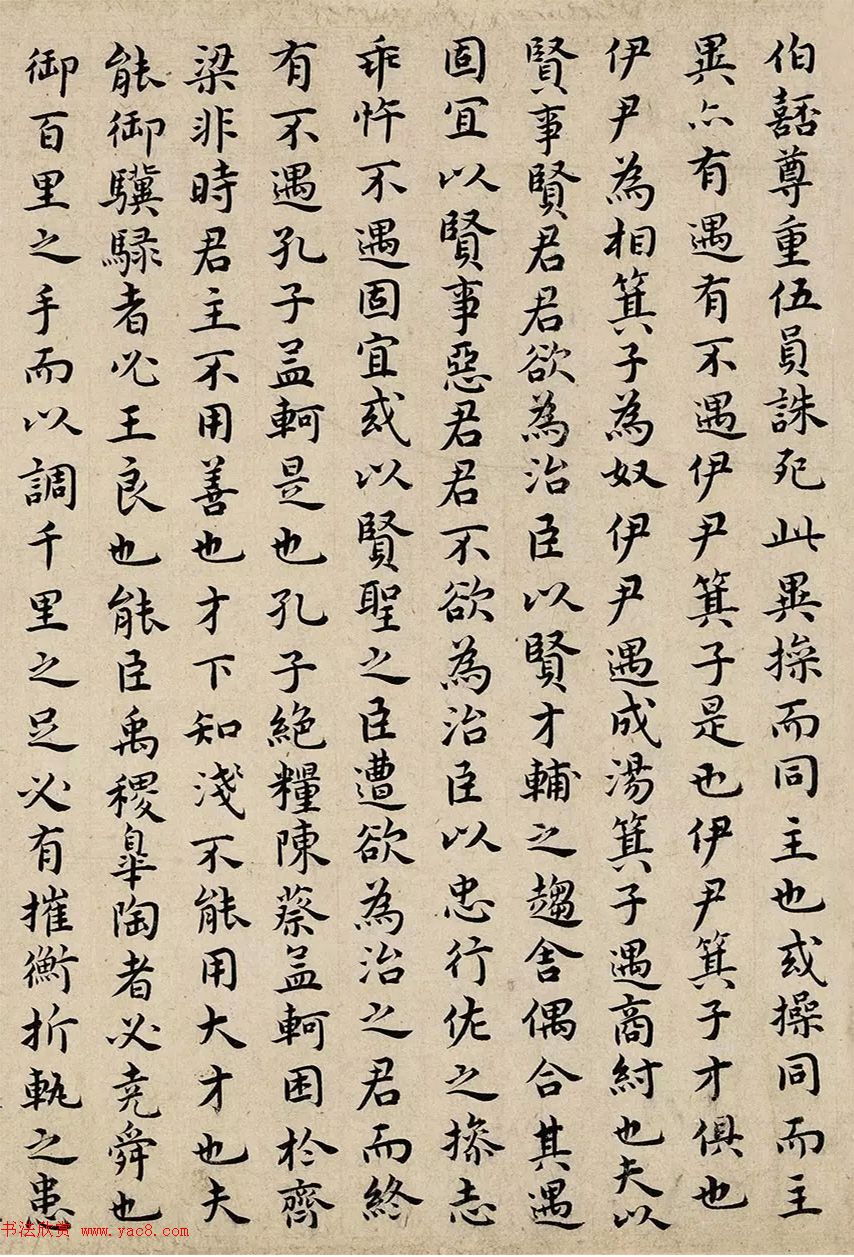 伯嚭尊重伍員誅死此異操而同主也或操同而主
異亦有遇有不遇伊尹箕子是也伊尹箕子才俱也
伊尹為相箕子為奴伊尹遇成湯箕子遇商紂也夫以
賢事賢君君欲為治臣以賢才輔之趨舍偶合其遇
固宜以賢事惡君君不欲為治臣以忠行佐之操志
乖忤不遇固宜或以賢聖之臣遭欲為治之君而終
有不遇孔子孟軻是也孔子絕糧陳蔡孟軻困於齊
梁非時君主不用善也才下知淺不能用大才也夫
能御驥騄者必王良也能臣禹稷皋陶者必堯舜也
御百里之手而以調千里之足必有摧衡折軛之患
书法欣赏 www.yac8.com